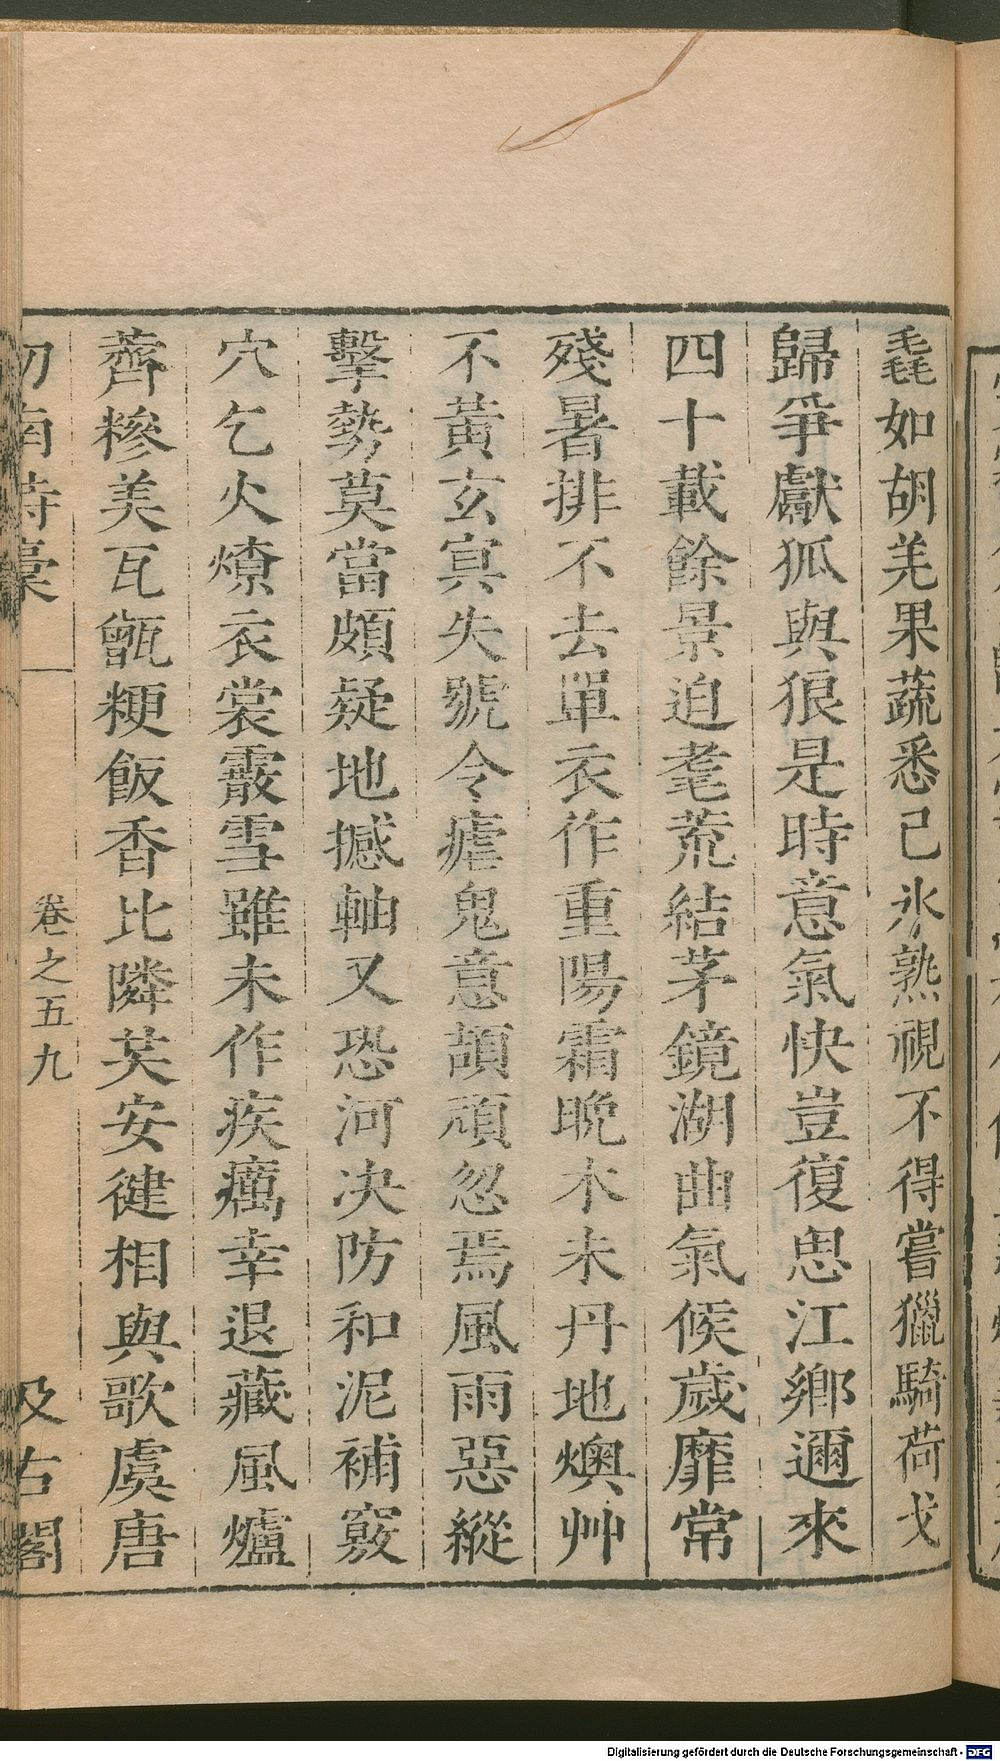 毳如胡羌果蔬悉已氷熟視不得嘗獵騎荷戈
歸爭獻狐與狼是時意氣快豈復思江鄉邇來
四十載餘景迫耄荒結茅鏡湖曲氣候歲靡常
殘暑排不去單衣作重陽霜晩木未丹地燠艸
不黃玄冥失號令瘧鬼意頡頏忽焉風雨惡縱
擊勢莫當頗疑地撼軸又恐河决防和泥補竅
穴乞火燎衣裳霰雪雖未作疾癘幸退藏風爐
薺糝美瓦甑粳飯香比隣芺安健相與歌虞唐
劒南詩稾
卷之五九
汲古閣
Digitalisierung gefördert durch die Deutsche Forschungsgemeinschaft - DFG